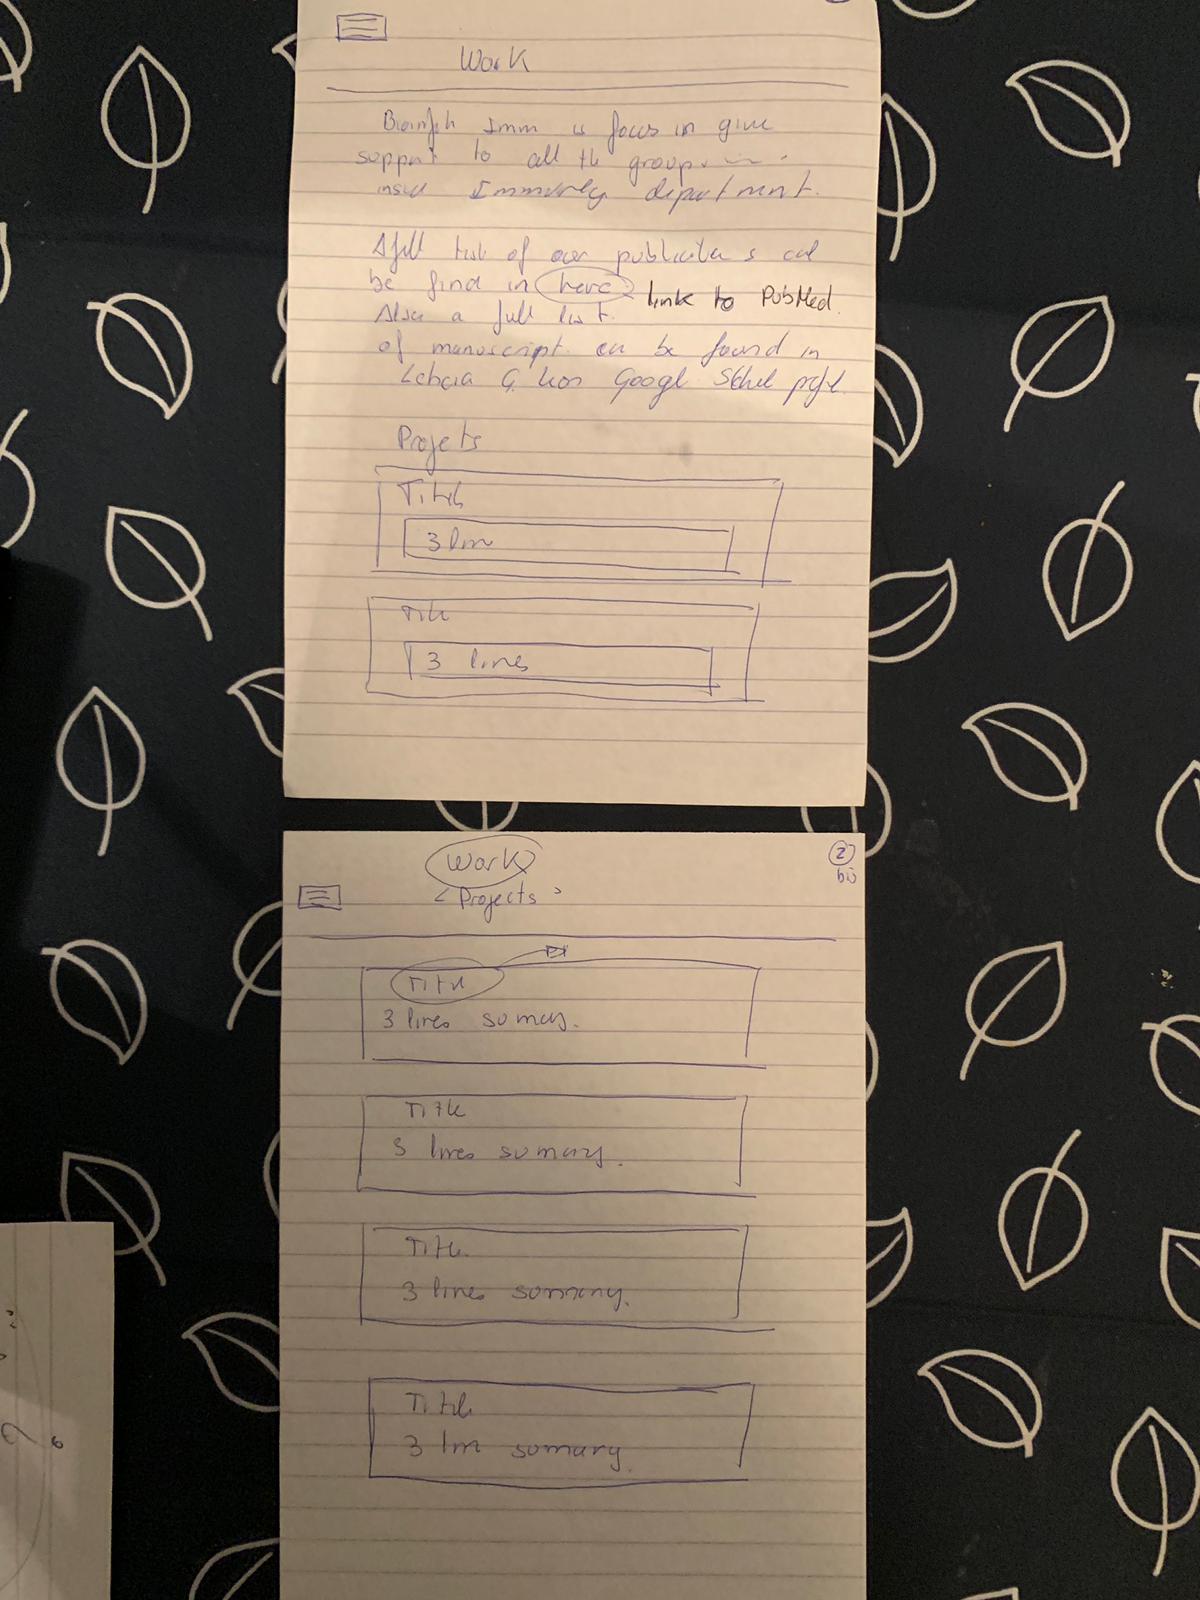 Work
Bioinfo Imm is focus in give
support to all the groups
inside Immunology department.
A full list of our publications can
be find in here link to PubMed.
Also a full list.
of manuscript can be found in
Google Schol profil.
Projets
Title
3 lin
Title
3 lines
Work
2
bis
< Projects >
Title
3 lines sumary.
Title
3 lines sumary.
Title.
3 lines sommary.
Title
3 lin sumary.